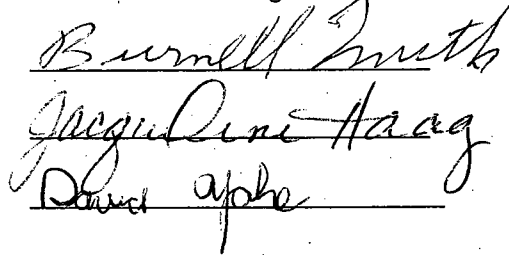 Burnell Smith
Jacqueline Haag
David